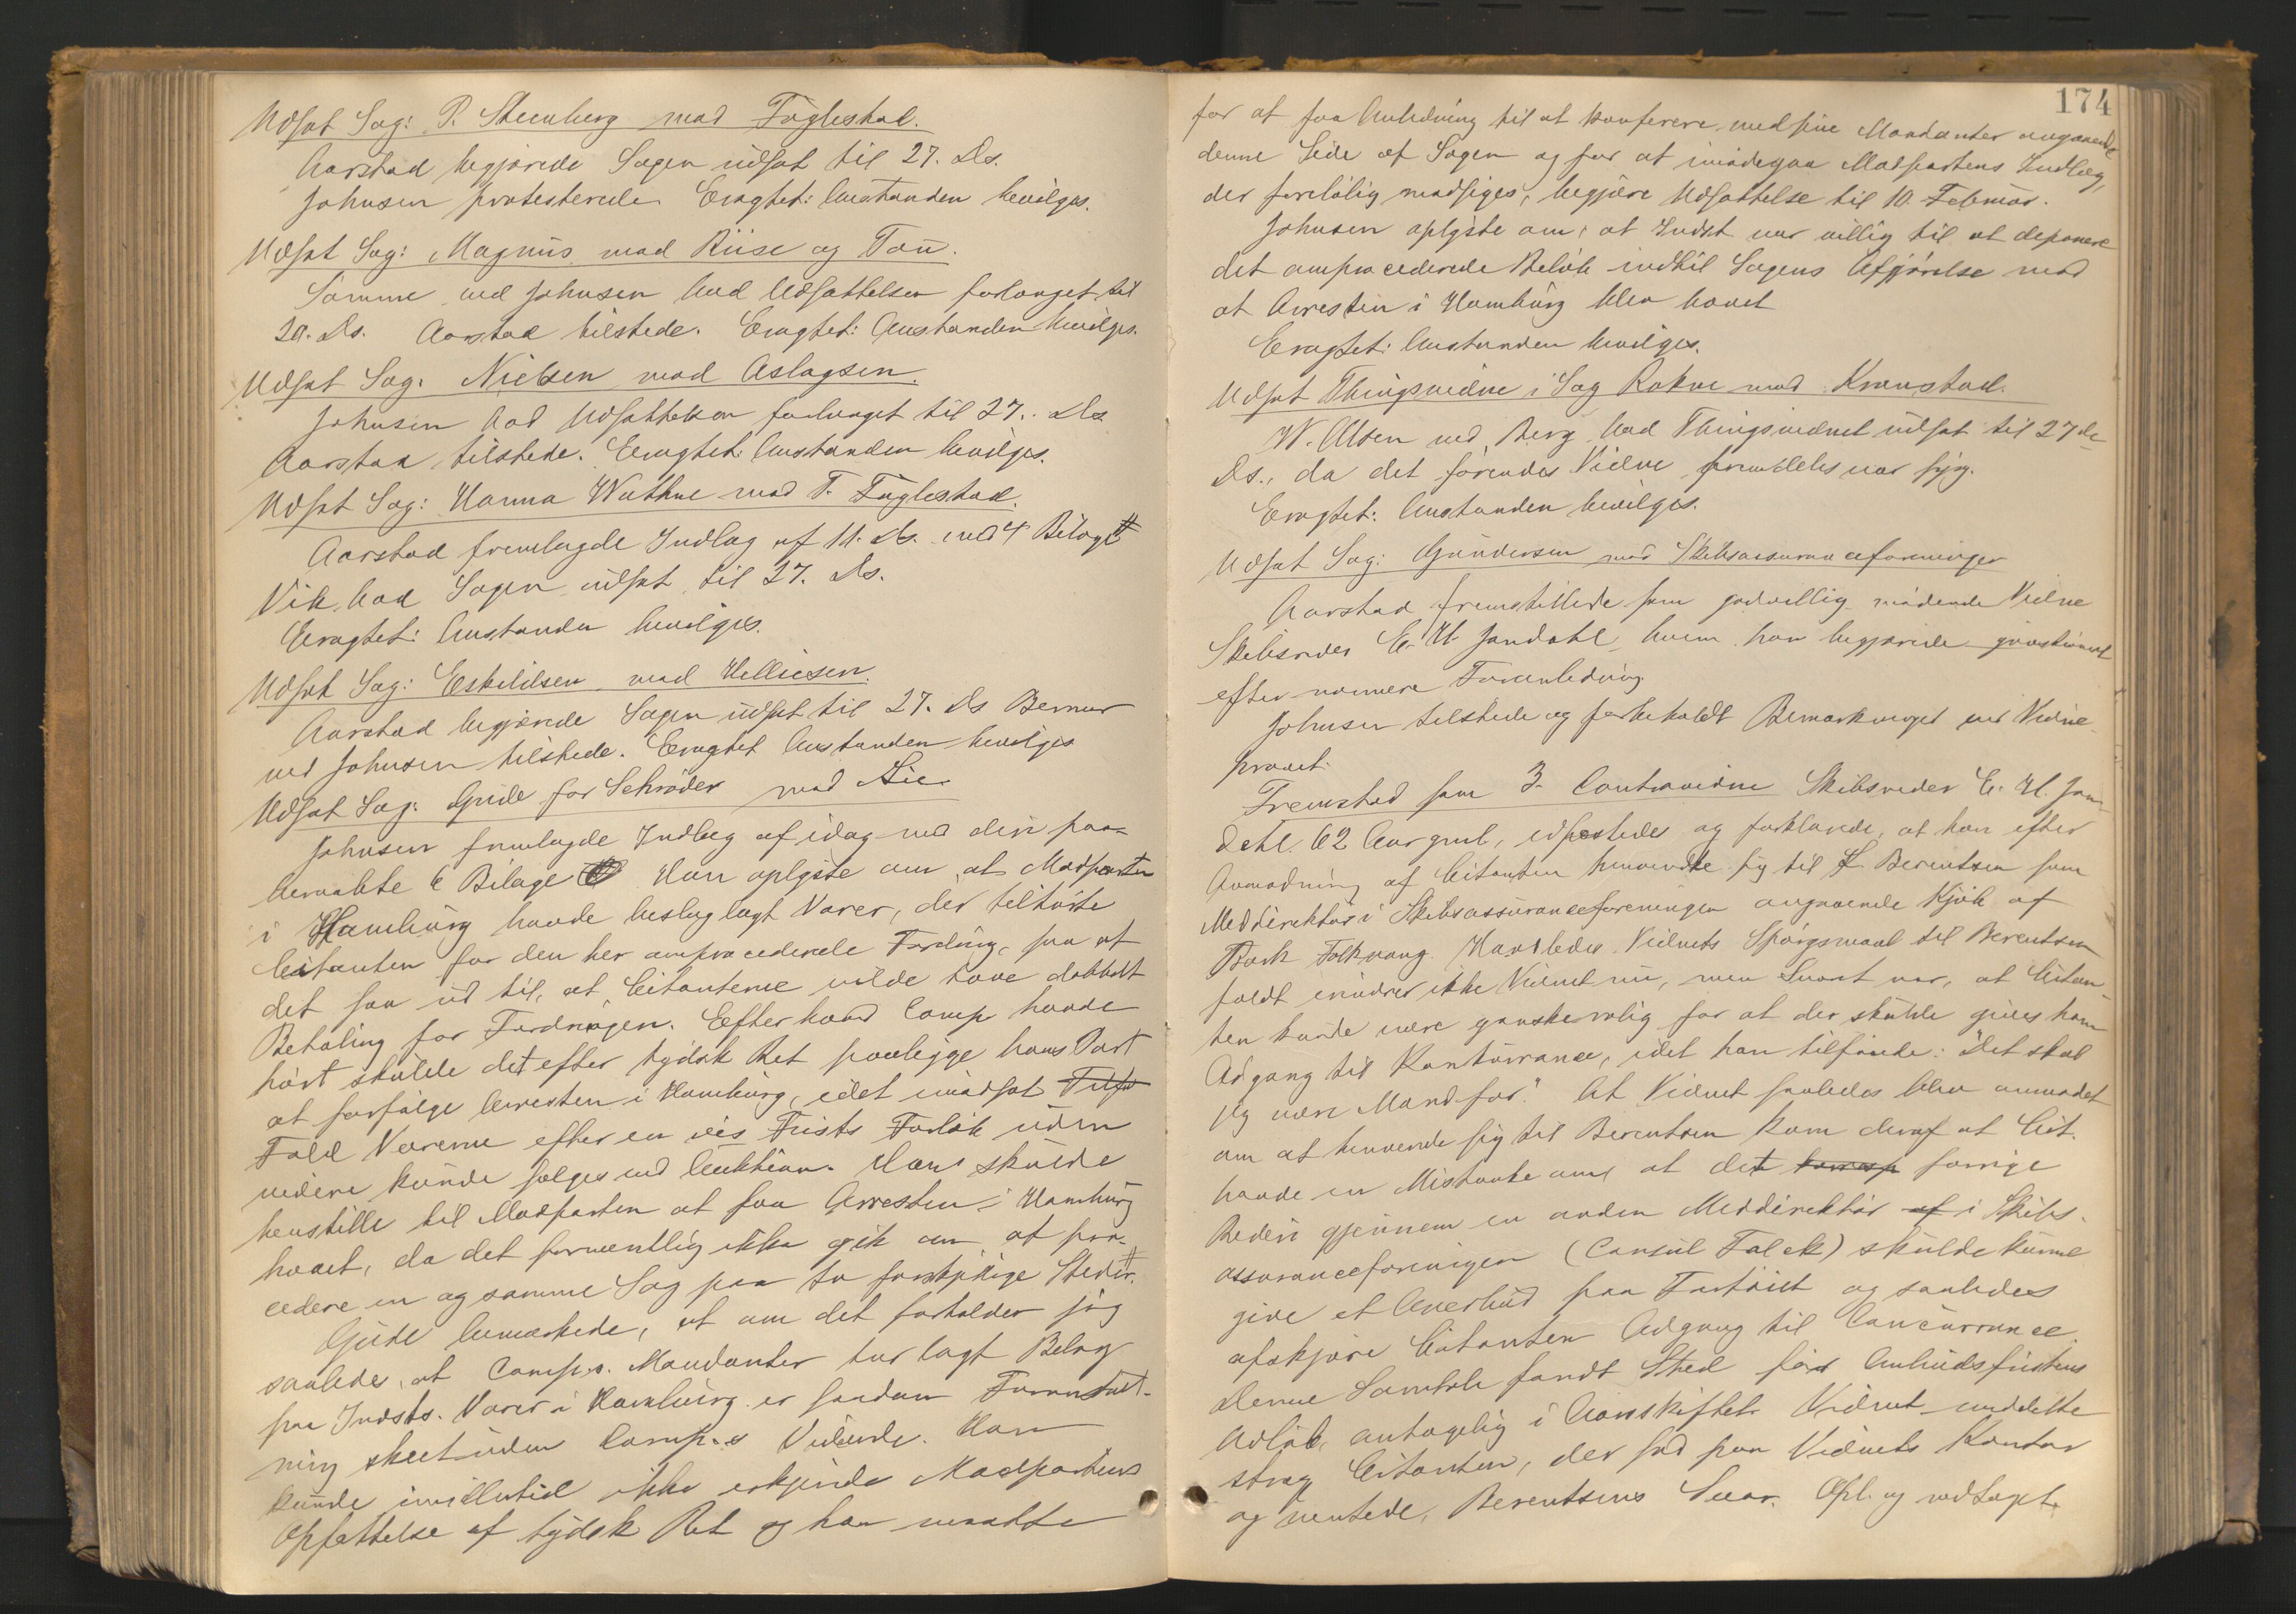 Udsat Sag: P. Steenberg mod Fuglestad.
Aarstad begjærede Sagen udsat til 27. Ds.
Johnsen protesterede. Eragtet: Anstanden bevilges.
Udsat Sag: Magnus mod Riise og Tou.
Samme ved Johnsen bad Udsættelsen forlænget til
20. Ds. Aarstad tilstede. Eragtet: Anstanden bevilges.
Udsat Sag: Nielsen mod Aslagsen.
Johnsen bad Udsættelsen forlænget til 27. Ds.
Aarstad tilstede. Eragtet: Anstanden bevilges.
Udsat Sag: Hanna Wathne mod T. Fuglestad.
Aarstad fremlagde Indlæg af 11. Ds. med 4 Bilage #
Vik bad Sagen udsat til 27. Ds.
Eragtet: Anstanden bevilges.
Udsat Sag: Eskildsen mod Helliesen.
Aarstad begjærede Sagen udsat til 27. Ds Berner
ved Johnsen tilstede. Eragtet Anstanden bevilges
Udsat Sag: Gude for Schrøder mod Lie
Johnsen fremlagde Indlæg af idag med deri paa-
beraabte 6 Bilage Han oplyste om at Modparten
i Hamburg havde beslaglagt Varer, der tilhørte
Citanten for den her omprocederede Fordring, saa at
det saa ud til, at Citanterne vilde have dobbelt
Betaling for Fordringen. Efter hvad Comp havde
hørt skulde det efter tydsk Ret paaligge hans Part
at forfølge Arresten i Hamburg, idet modsat
Fald Varerne efter en vis Frists Forløb uden
videre kunde sælges ved Auktion. Han skulde
henstille til Modparten at faa Arresten i Hamburg
hævet, da det formentlig ikke gik an at pro-
cedere en og samme Sag paa to forskjellige Steder. #
Gude bemærkede, at om det forholder sig
saaledes, at Comp.s Mandanter har lagt Beslag
paa Indsts. Varer i Hamburg er saadan Foranstalt-
ning skeet uden Comp.s Vidende. Han
kunde imidlertid ikke erkjende Modpartens
Opfattelse af tydsk Ret og han maatte
174
for at faa Anledning til at konferere med sine Mandanter angaaende
denne Side af Sagen og for at imødegaa Modpartens Indlæg,
der foreløbig modsiges, begjære Udsættelse til 10. Februar.
Johnsen oplyste om, at Indst var villig til at deponere
det omprocederede Beløb indtil Sagens Afgjørelse mod
at Arresten i Hamburg blev hævet
Eragtet: Anstanden bevilges.
Udsat Thingsvidne i Sag Rokne mod Kronstad.
W. Olsen ved Berg bad Thingsvidnet udsat til 27de
Ds., da det førendes Vidne fremdeles var syg.
Eragtet: Anstanden bevilges.
Udsat Sag: Gundersen mod Skibsassuranceforeningen
Aarstad fremstillede som godvillig mødende Vidne
Skibsreder E. H. Jandahl, hvem han begjærede qvæstioneret
efter nærmere Foranledning
Johnsen tilstede og forbeholdt Bemærkninger ved Vidne-
provet.
Fremstod som 3. Contravidne Skibsreder E. H. Jan-
dahl. 62 Aar gml, edfæstedes og forklarede, at han efter
Anmodning af Citanten henvendte sig til L. Berentsen som
Meddirektør i Skibsassuranceforeningen angaaende Kjøb af
Bark Folkvang. Hvorledes Vidnets Spørgsmaal til Berentsen
faldt erindrer ikke Vidnet nu, men Svaret var, at Citan-
ten kunde være ganske rolig for at der skulde gives ham
Adgang til Konkurrance, idet han tilføiede: "Det skal
jeg være Mand for." At Vidnet saaledes blev anmodet
om at henvende sig til Berentsen kom deraf at Cit.
havde en Mistanke om, at det forrige
Rederi gjennem en anden Meddirektør af i Skibs-
assuranceforeningen (Consul Falck) skulde kunne
give et Overbud paa Fartøiet og saaledes
afskjære Citanten Adgang til Concurrance.
Denne Samtale fandt Sted før Anbudsfristens
Udløb, antagelig i Aarsskiftet. Vidnet meddelte
strax Citanten, der sad paa Vidnets Kontor
og ventede, Berentsens Svar. Opl. og vedtaget.